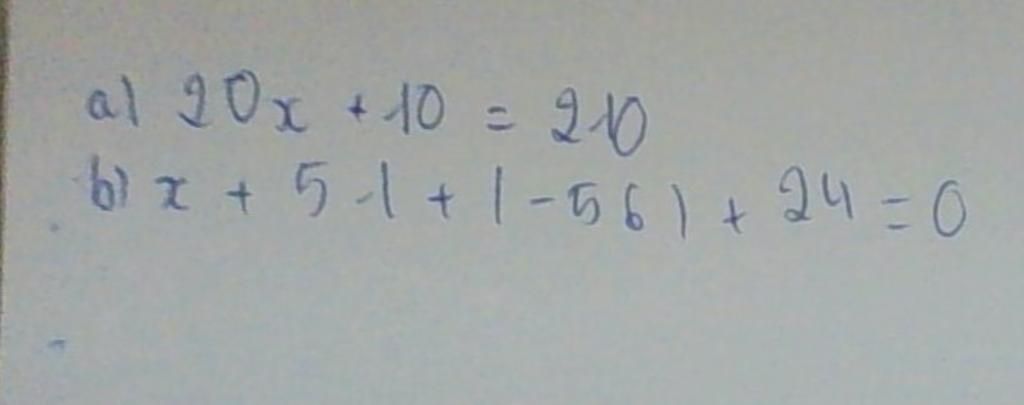 a) 20x + 10 = 210
b) x + 5 - 1 + (-56) + 24 = 0